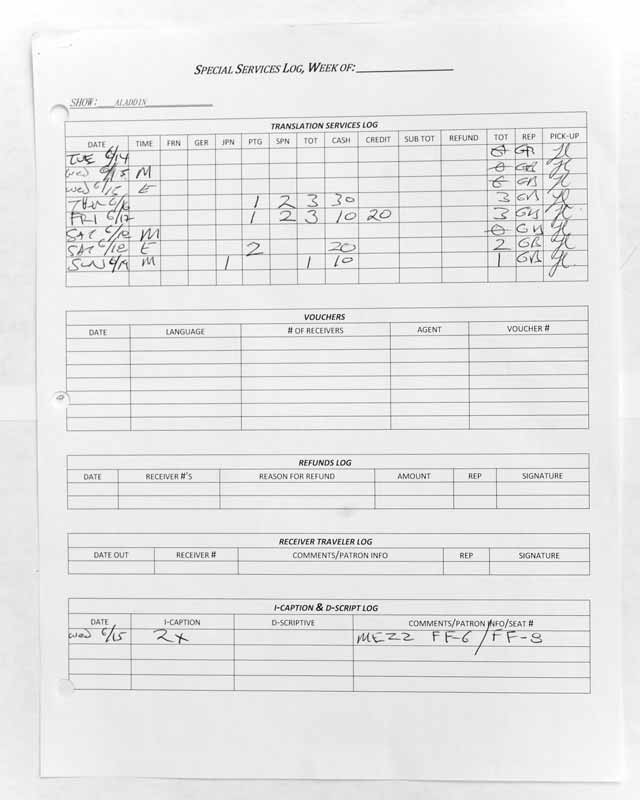 SPECIAL SERVICES LOG, WEEK OF:
SHOW: ALADDIN
TRANSLATION SERVICES LOG
DATE TIME FRN GER JPN PTG SPN TOT CASH CREDIT SUB TOT REFUND TOT REP PICK-UP
TUE 6/14 0 GB
Wed 6/15 M 0 GB
Wed 6/15 E 0 GB
THU 6/16 1 2 3 30 3 GB
FRI 6/17 1 2 3 10 20 3 GB
SAT 6/18 M 0 GB
SAT 6/18 E 2 20 2 GB
SUN 6/19 M 1 1 10 1 GB
VOUCHERS
DATE LANGUAGE # OF RECEIVERS AGENT VOUCHER #
REFUNDS LOG
DATE RECEIVER #'S REASON FOR REFUND AMOUNT REP SIGNATURE
RECEIVER TRAVELER LOG
DATE OUT RECEIVER # COMMENTS/PATRON INFO REP SIGNATURE
I-CAPTION & D-SCRIPT LOG
DATE I-CAPTION D-SCRIPTIVE COMMENTS/PATRON INFO/SEAT #
Wed 6/15 2x MEZZ FF-6/FF-8